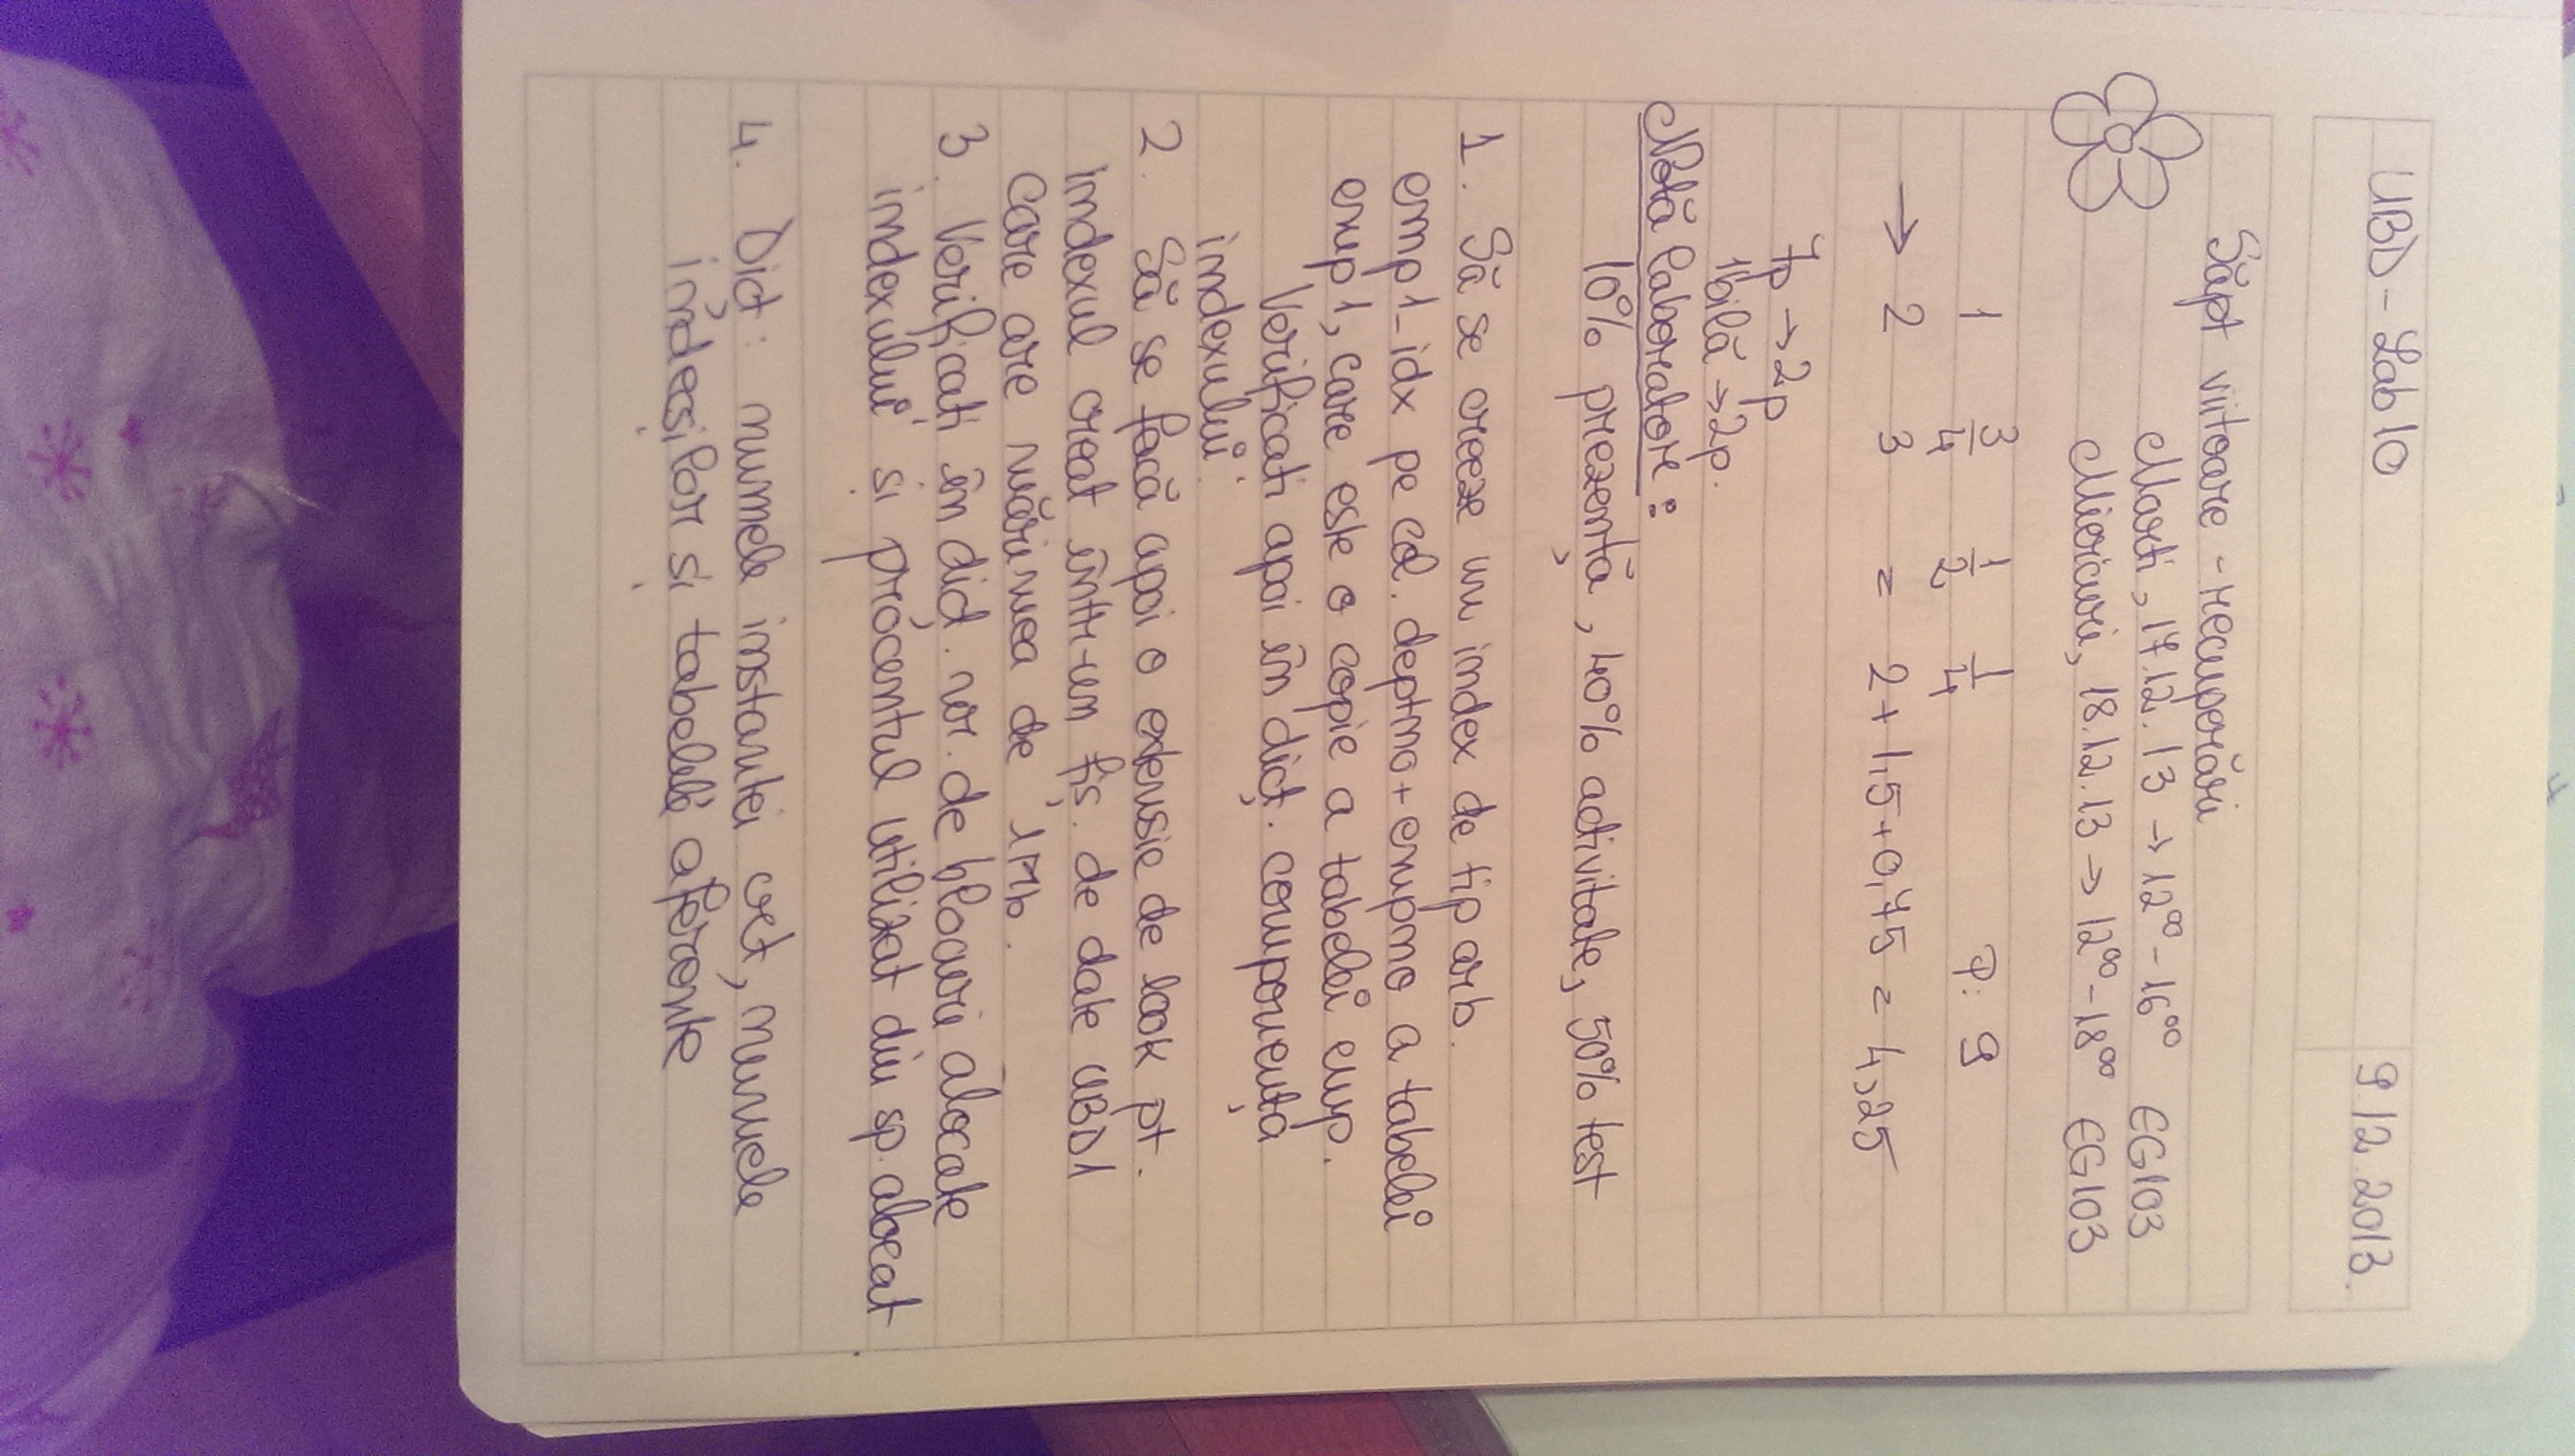 UBD - Lab 10
9.12.2013.
Săpt viitoare - recuperări
Marti, 17.12.13 → 12⁰⁰ - 16⁰⁰ EG103
Miercuri, 18.12.13 → 12⁰⁰ - 18⁰⁰ EG103
1 3/4 1/2 1/4 P: 9
→ 2 3 = 2 + 1,5 + 0,75 = 4,25
7p → 2p
1bilă → 2p.
Notă laborator:
10% prezență, 40% activitate, 50% test
1. Să se creeze un index de tip arb.
emp1_idx pe col. deptno + empno a tabelei
emp1, care este o copie a tabelei emp.
Verificati apoi în dicț. componența
indexului.
2. Să se facă apoi o extensie de 100k pt.
indexul creat într-un fiș. de date UBD1
care are mărimea de 1Mb.
3. Verificati în dict. nr. de blocuri alocate
indexului și procentul utilizat din sp. alocat
4. Dict: numele instantei crt, numele
indecșilor și tabelele aferente